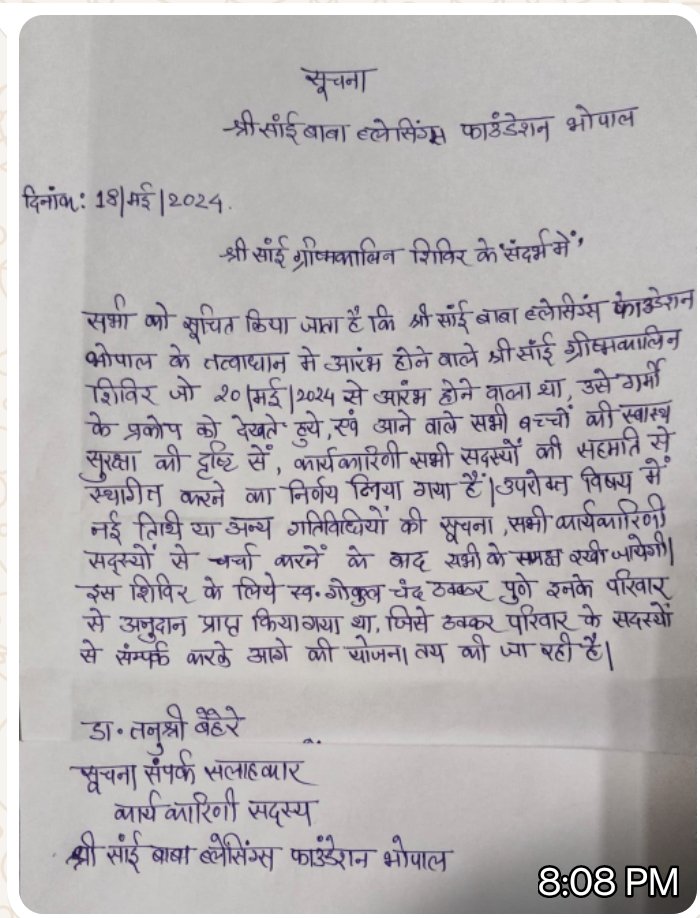 सूचना
श्री सांई बाबा ब्लेसिंग्स फाउंडेशन भोपाल
दिनांक: 18|मई|2024.
श्री सांई ग्रीष्मकालिन शिविर के 'संदर्भ में'
सभी को सूचित किया जाता है कि श्री सांई बाबा ब्लेसिंग्स फाउंडेशन
भोपाल के तत्वाधान मे आरंभ होने वाले श्री सांई ग्रीष्मकालिन
शिविर जो 20|मई|2024 से आरंभ होने वाला था, उसे गर्मी
के प्रकोप को देखते हुये, एवं आने वाले सभी बच्चों की स्वास्थ
सुरक्षा की दृष्टि सें, कार्यकारिणी सभी सदस्यों की सहमति से
स्थागीत करने का निर्णय लिया गया हैं| उपरोक्त विषय में
नई तिथि या अन्य गतिविधियों की सूचना, सभी कार्यकारिणी
सदस्यों से चर्चा करनें के बाद सभी के समक्ष रखी जायेगी|
इस शिविर के लिये स्व. गोकुल चंद ठक्कर पुणे इनके परिवार
से अनुदान प्राप्त किया गया था, जिसे ठक्कर परिवार के सदस्यों
से संम्पर्क करके आगे की योजना तय की जा रही है|
डा. तनुश्री बेहेरे
सूचना संपर्क सलाहकार
कार्य कारिणी सदस्य
श्री सांई बाबा ब्लेसिंग्स फाउंडेशन भोपाल
8:08 PM